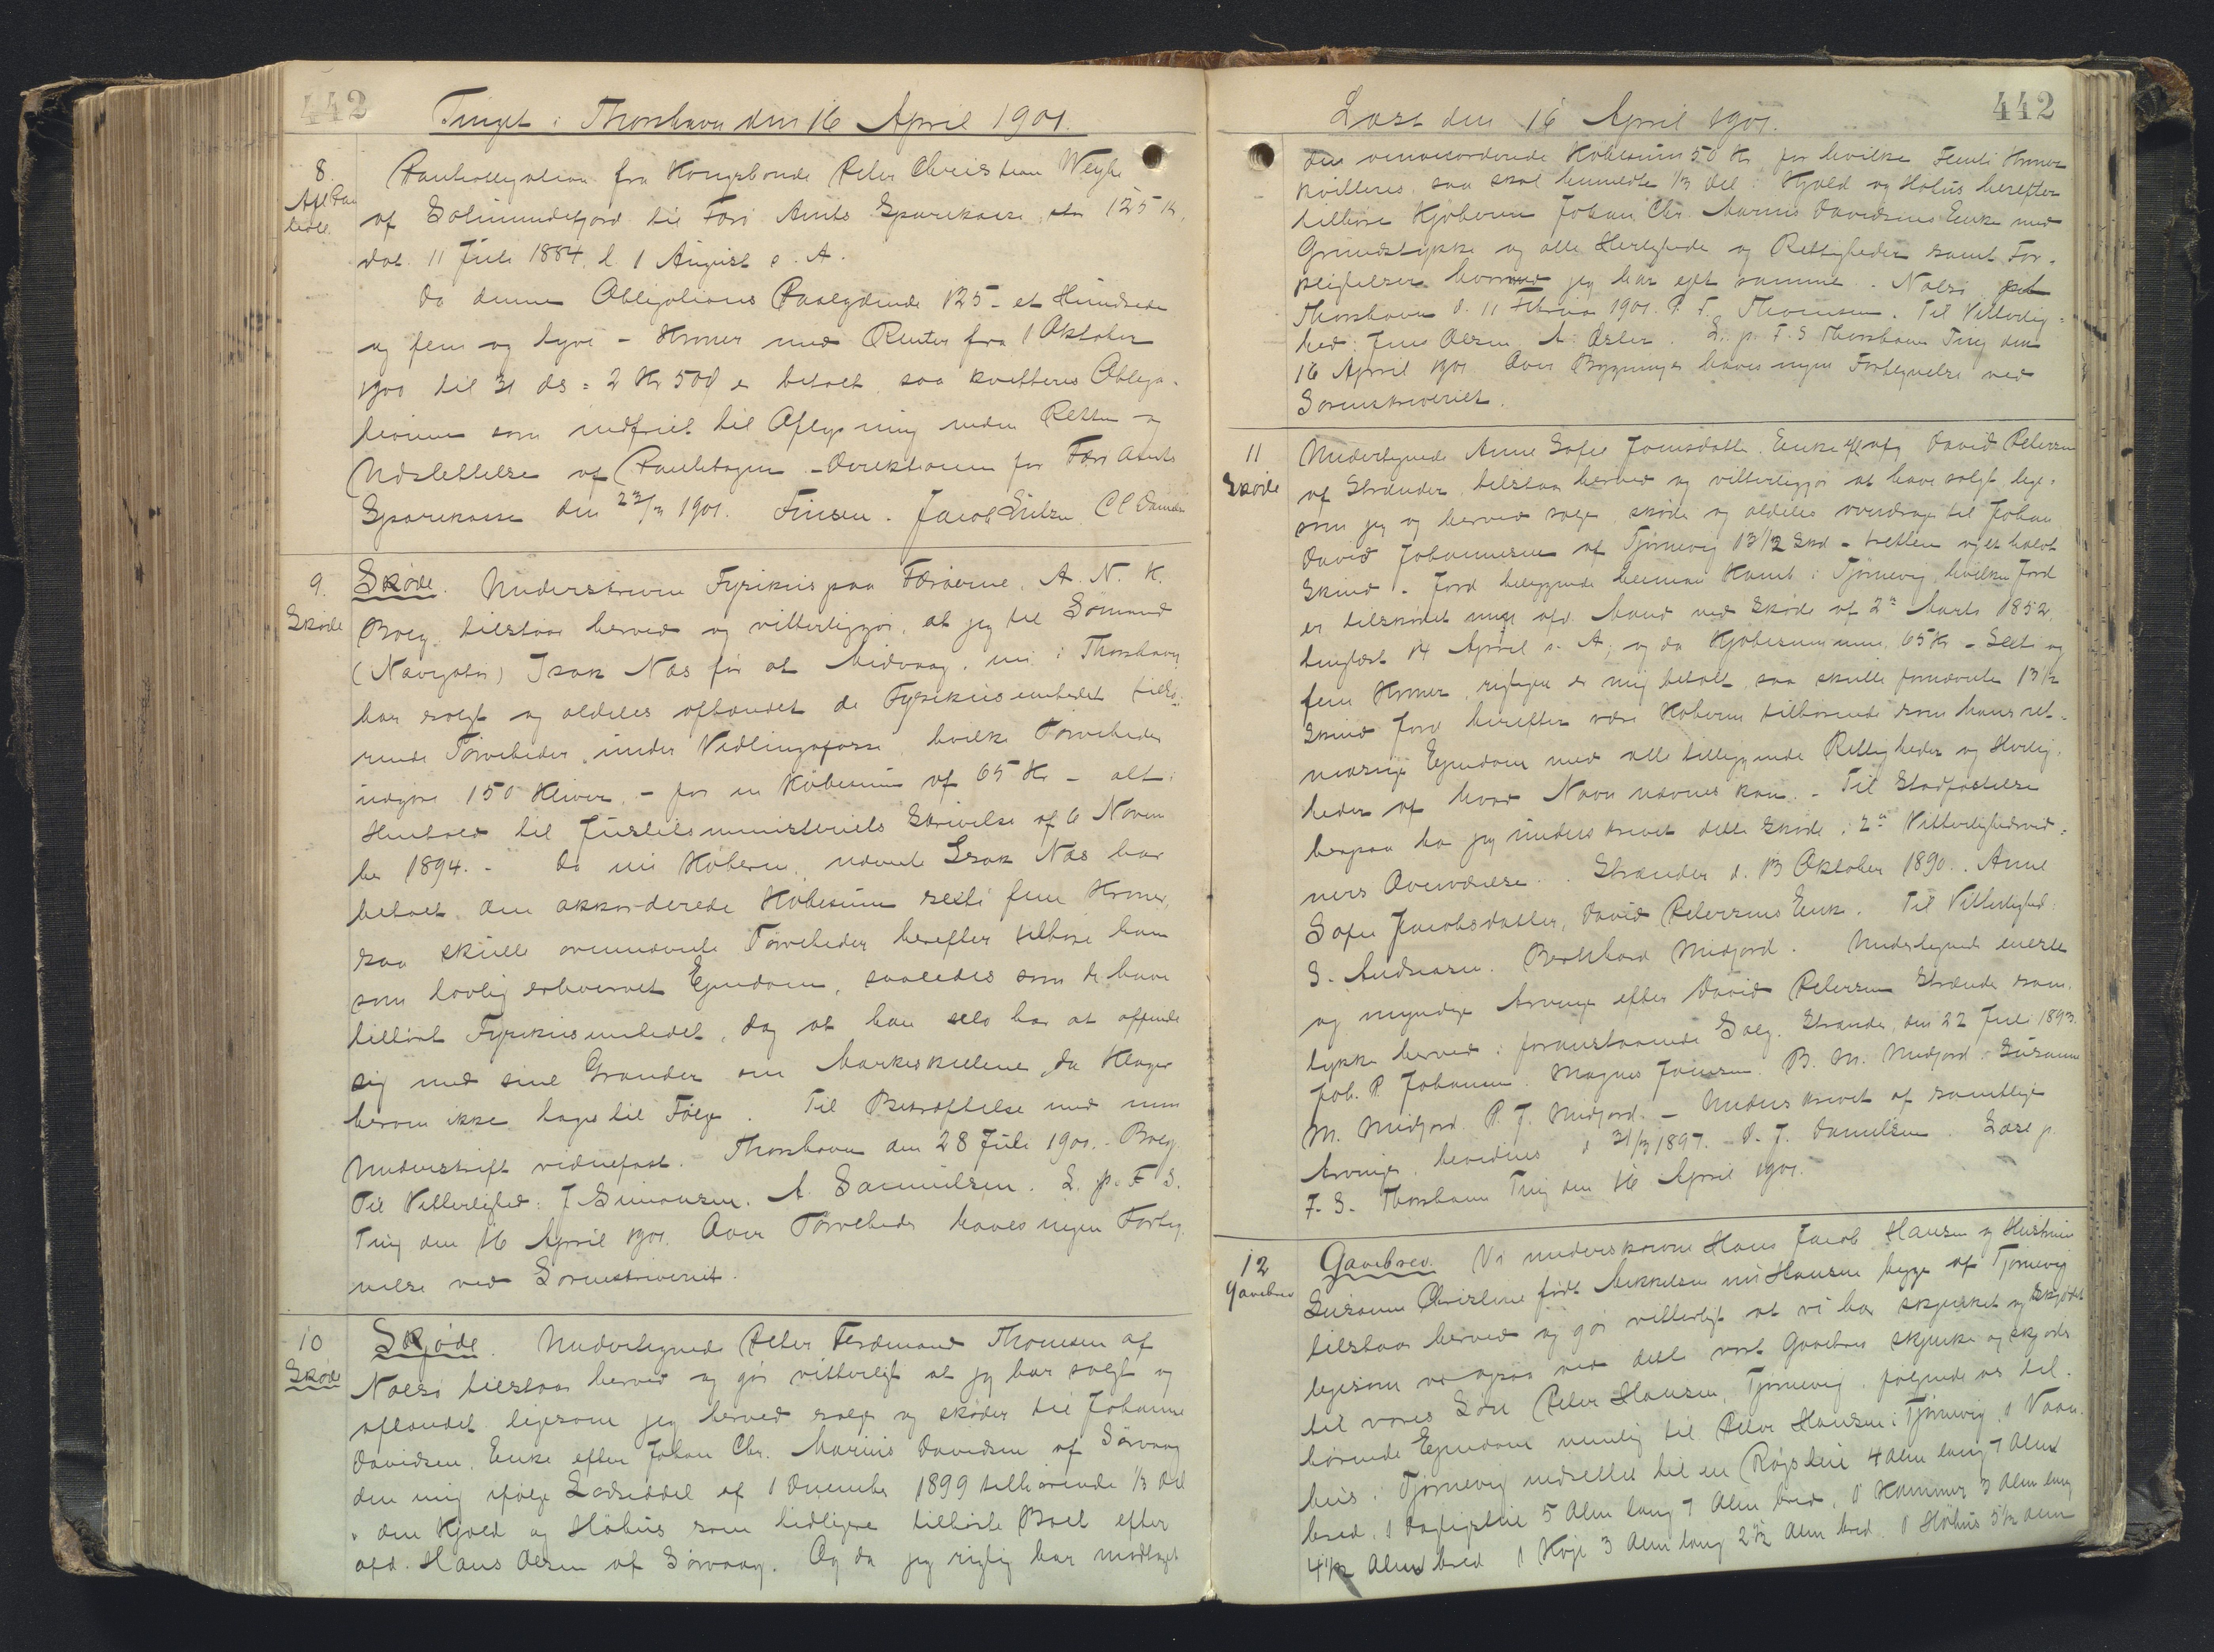 442
Tinget i Thorshavn den 16 April 1901.
8.
Afl Pan
tedte.
Pantobligation fra Kongsbonde Peter Christian Weyhe
af Solmundefjord til Færø Amts Sparekasse, stor 125 Kr,
dat. 11 Juli 1884, l. 1 August s. A.
Da denne Obligations Paalydende 125 - et Hundrede
og fem og tyve - Kroner med Renter fra 1 Oktober
1900 til 31 ds = 2 Kr 50 Ø er betalt saa kvitteres Obliga-
tionen som indfriet til Aflysning inden Retten og
Udslettelse af Pantebogen - Direktionen for Færø Amts
Sparekasse den 23/3 1901. Finsen. Jacob Lützen C C Danielsen
9.
Skøde
Skøde. Underskrevne Fysikus paa Færøerne, A. N. K.
Boeg, tilstaar herved og vitterliggør, at jeg til Sømand
(Navigatør) Isak Næs før at Midvaag, nu i Thorshavn
har solgt og aldeles afhændet de Fysikusembedet tilhø-
rende Tørveheder under Vedlingafosse hvilke Tørveheder
udgøre 150 Kliver, - for en Købesum af 65 Kr - alt i
Henhold til Justitsministeriets Skrivelse af 6 Novem
ber 1894. - Da nu Køberen, nævnte Isak Næs har
betalt den akkorderede Købesum sexti fem Kroner,
saa skulle ovennævnte Tørveheder herefter tilhøre ham
som lovlig erhvervet Ejendom, saaledes som de have
tilhørt Fysikusembedet, dog at han selv har at affinde
sig med sine Grander om Markeskellene, da Klager
herom ikke tages til Følge. Til Bekræftelse med min
Underskrift vidnefast. Thorshavn den 28 Juli 1900. Boeg.
Til Vitterlighed: J Simonsen. A Samuelsen. L. p. F. S.
Ting den 16 April 1901. Over Tørveheder haves ingen Forteg-
nelse ved Sorenskriveriet.
10
Skøde
Skjøde. Undertegnede Peter Ferdinand Thomsen af
Nolsø tilstaar herved og gør vitterligt at jeg har solgt og
afhændet ligesom jeg herved sælger og skøder til Johanne
Davidsen, Enke efter Johan Chr. Marius Davidsen af Sørvaag
den mig ifølge Lodseddel af 1 December 1899 tilhørende 1/3 Del
i den Kjæld og Høhus som tidligere tilhørte Boet efter
afd. Hans Olsen af Sørvaag. Og da jeg rigtig har modtaget
Læst den 16 April 1901.
442
den omaccorderede Købesum 50 Kr for hvilke Femti Kroner
kvitteres, saa skal bemeldte 1/3 Del i Kjæld og Høhus herefter
tilhøre Kjøberen Johan Chr. Marius Davidsens Enke med
Grundstykke og alle Herligheder og Rettigheder samt For-
pligtelser hvormed jeg har ejet samme. Nolsø pt
Thorshavn d. 11 Februar 1901. P. F. Thomsen. Til Vitterlig-
hed: Jens Olsen. A. Osler. L. p. F. S Thorshavn Ting den
16 April 1901 Over Bygninger haves ingen Fortegnelse ved
Sorenskriveriet.
11
Skøde
Undertegnede Anne Sofie Joensdatter Enke eft afg David Petersen
af Strænder, tilstaar herved og vitterliggjør at have solgt, lige-
som jeg og herved sælger, skøder og aldeles overdrager til Johan
David Johannesen af Tjørnevig 13 1/2 Skd - tretten og et halvt
Skind - Jord beliggende hemmai Kamb i Tjørnevig, hvilken Jord
er tilskødet min afd. Mand ved Skøde af 2n Marts 1852,
tinglæst 14 April s. A; og da Kjøbesummen, 65 Kr - Sexti og
fem Kroner, rigtigen er mig betalt, saa skulle fornævnte 13 1/2
Skind Jord herefter være Køberen tilhørende som hans ret-
mæssige Ejendom med alle tilliggende Rettigheder og Herlig-
heder af hvad Navn nævnes kan. - Til Stadfæstelse
herpaa har jeg underskrevet dette Skøde i 2n Vitterlighedsvid-
ners Overværelse. Strænder d. 13 Oktober 1890. Anne
Sofie Jacobsdatter, David Petersens Enke. Til Vitterlighed:
S. Andreasen. Berthard Midjord. Undertegnede eneste
og myndige Arvinger efter David Petersen Strænder sam-
tykke herved i foranstaaende Salg. Strænder, den 22 Juli 1893.
Joh. P. Johansen. Magnus Joensen. B. M. Midjord. Susanne
M. Midjord. P. J. Midjord. - Underskrevet af samtlige
Arvinger, bevidnes d 31/3 1897. D. J. Danielsen. Læst p.
F. S. Thorshavn Ting den 16 April 1901.
12
Gavebrev
Gavebrev. Vi underskrevne Hans Jacob Hansen og Hustru
Susanne Christine født Mikkelsen nu Hansen begge af Tjørnevig
tilstaar herved og gør vitterligt at vi har skjenket og skjødet
ligesom vi ogsaa ved dette vort Gavebrev skjenke og skjøde
til vores Søn Peter Hansen, Tjørnevig, følgende os til-
hørende Ejendom nemlig til Peter Hansen i Tjørnevig, 1 Vaan-
hus i Tjørnevig indrettet til en Røgstue 4 Alen lang 7 Alen
bred, 1 Dagligstue 5 Alen lang 7 Alen bred, 1 Kammer 3 Alen lang
4 1/2 Alen bred 1 Køje 3 Alen lang 2 1/2 Alen bred. 1 Høhus 5 1/2 Alen